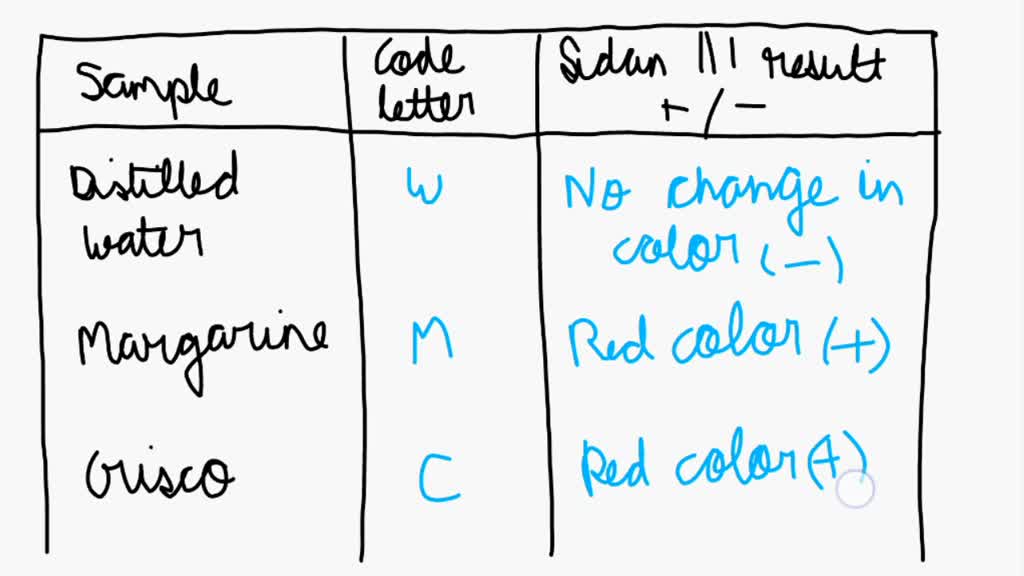 Sample Code letter Sudan III result + / -
Distilled water W No change in color (-)
Margarine M Red color (+)
Crisco C Red color (+)